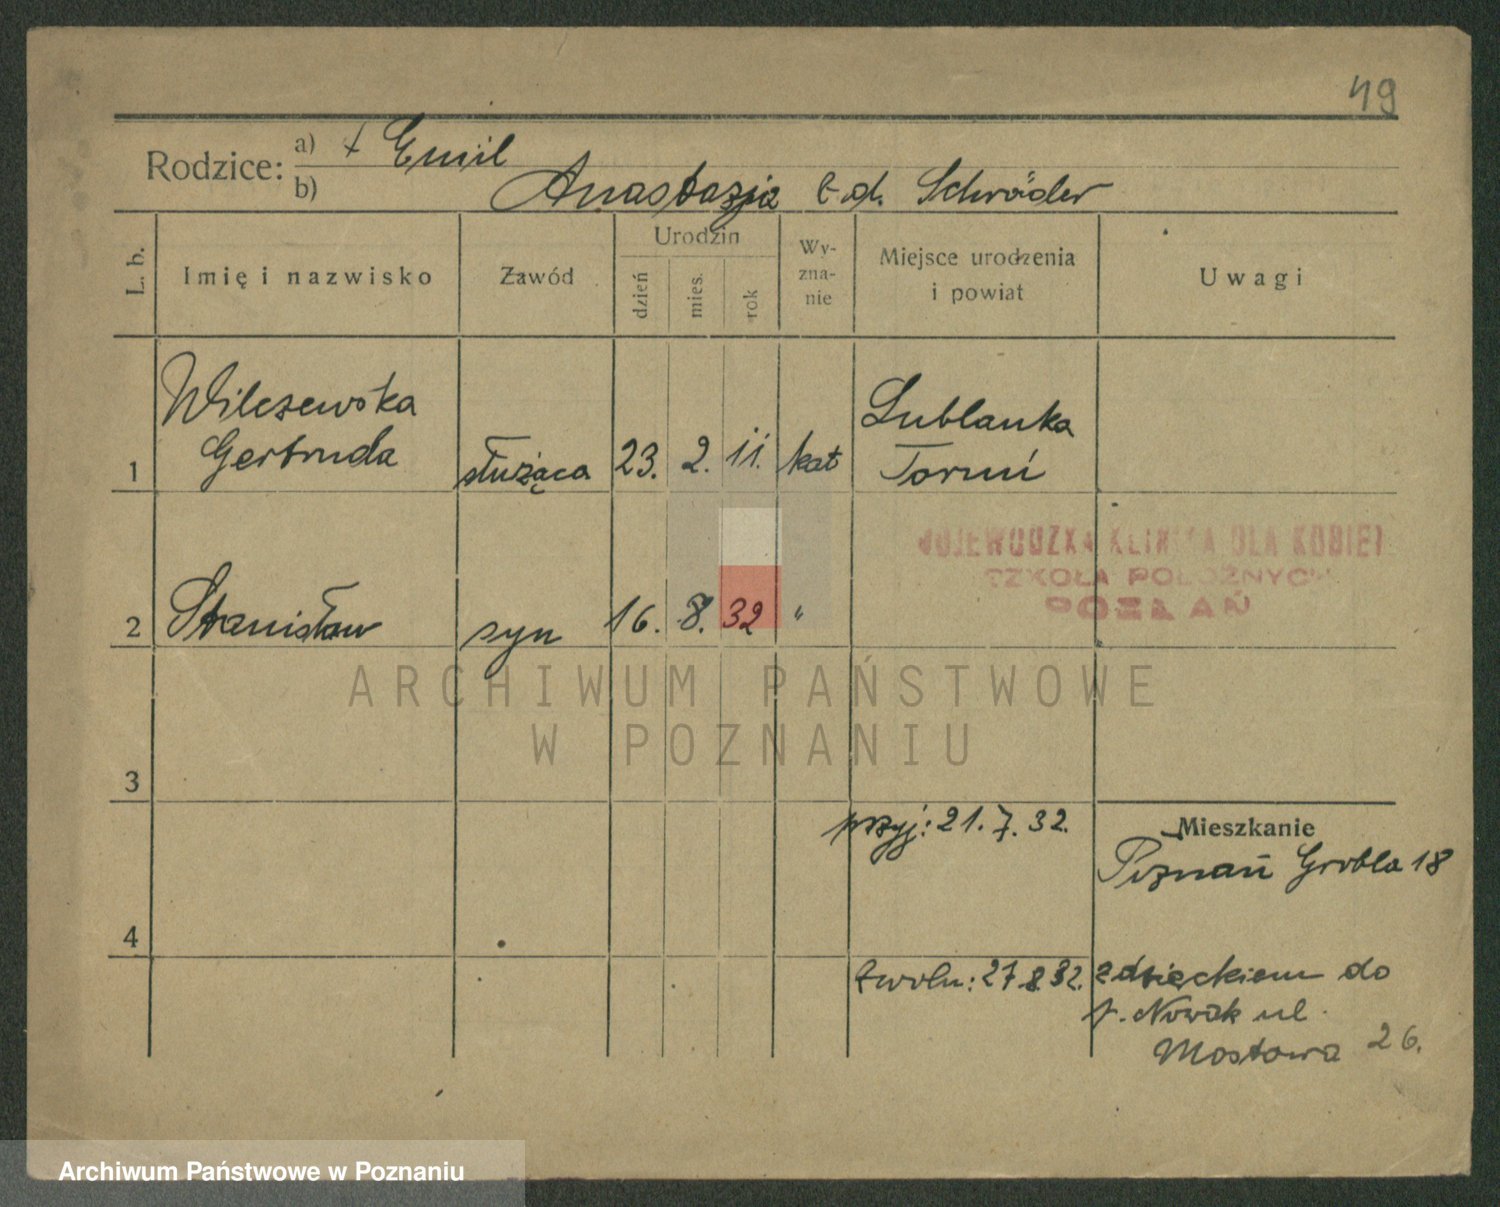 49
Rodzice: a) + Emil
b) Anastazja z d. Schröder
L. b.
Imię i nazwisko
Zawód
Urodzin
dzień
mies.
rok
Wy-
zna-
nie
Miejsce urodzenia
i powiat
Uwagi
1
Wilczewska
Gertruda
służąca
23. 2. 11.
kat
Lublanka
Toruń
WOJEWÓDZKA KLINIKA DLA KOBIET
SZKOŁA POŁOŻNYCH
POZNAŃ
2
Stanisław
syn
16. 8. 32
"
ARCHIWUM PAŃSTWOWE
W POZNANIU
3
przyj: 21. 7. 32.
Mieszkanie
Poznań Grobla 18
4
zwoln: 27.8.32. z dzieckiem do
p. Nowak ul.
Mostowa 26.
Archiwum Państwowe w Poznaniu